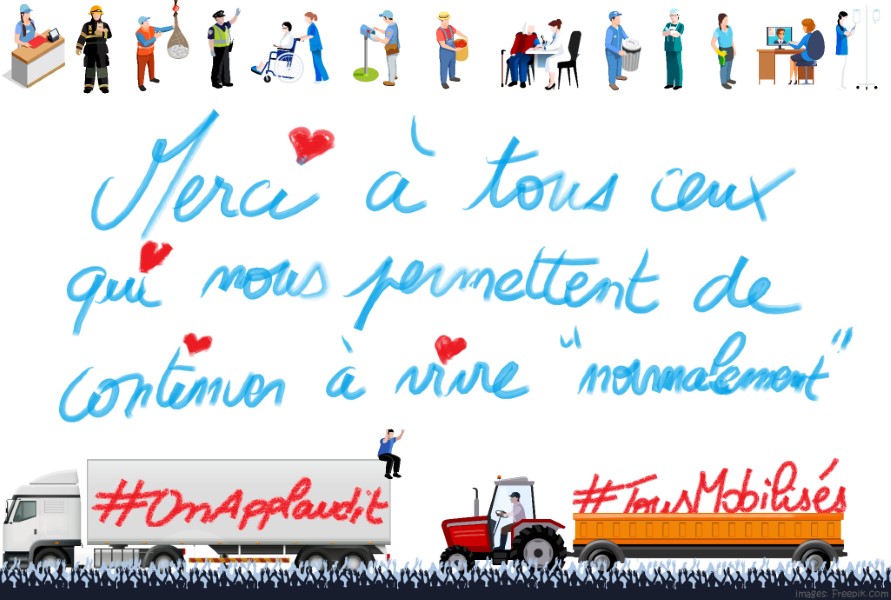 Merci à tous ceux
qui nous permettent de
continuer à vivre "normalement"
#OnApplaudit
#TousMobilisés
images: Freepik.com